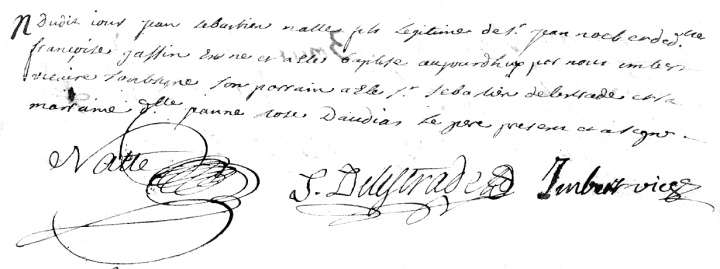 Dudit jour jean sebastien natte fils legitime de sr. jean noel et de dlle
françoise gassin est ne et a ete baptisé aujourdhuy par nous imbert
vicaire soubsigne son parrain a ete sr. sebastien delestrade et sa
marraine dlle jeanne rose Daudias le pere present et a signe
Natte S. Delestrade Imbert vice